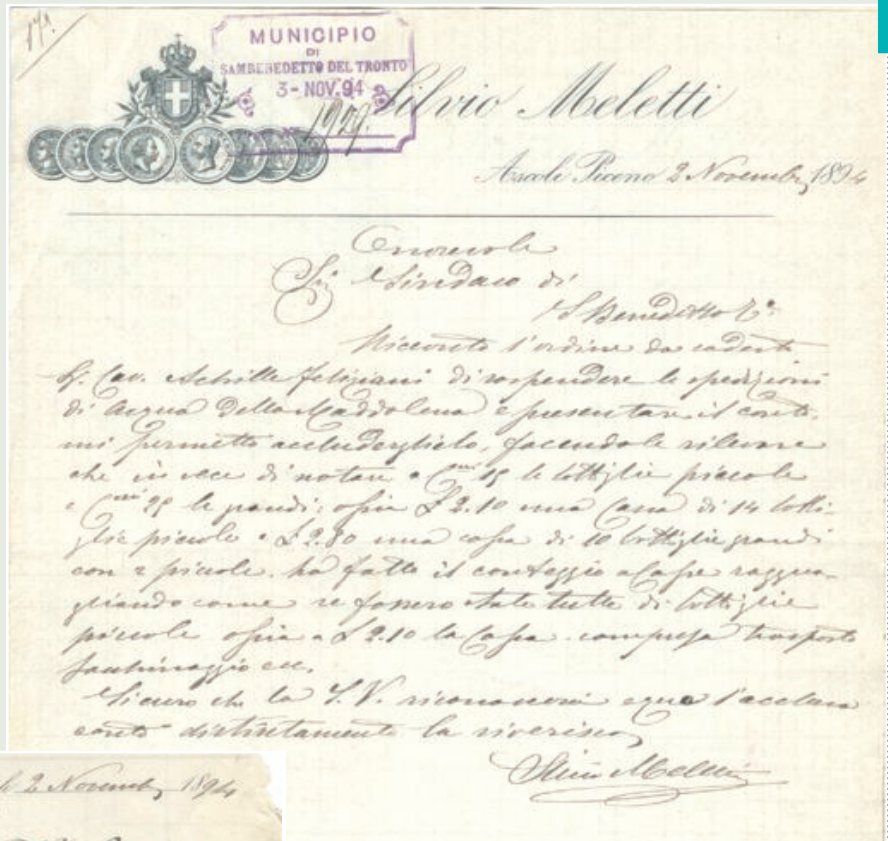 171.
MUNICIPIO
DI
SAMBENEDETTO DEL TRONTO
3 - NOV. 94
1929.
Silvio Meletti
Ascoli Piceno 2 Novembre 1894
Onorevole
Sig. Sindaco di
S Benedetto To.
Ricevuto l'ordine da codesto
Sr. Cav. Achille Feliziani di sospendere le spedizioni
di Acqua Della Maddalena e presentare il conto
mi permetto accluderglielo, facendole rilevare
che in vece di notare a Cmi 15 le bottiglie piccole
e Cmi 25 le grandi; ossia £ 2.10 una Cassa di 14 botti-
glie piccole e £ 2.80 una cassa di 10 bottiglie grandi
con 2 piccole. ho fatto il conteggio a Casse raggua-
gliando come se fossero state tutte di bottiglie
piccole ossia a £ 2.10 la Cassa compreso trasporto
facchinaggio ecc.
Sicuro che la S. V. riconoscerà equo l'accluso
conto distintamente la riverisco
Silvio Meletti
2 Novembre 1894